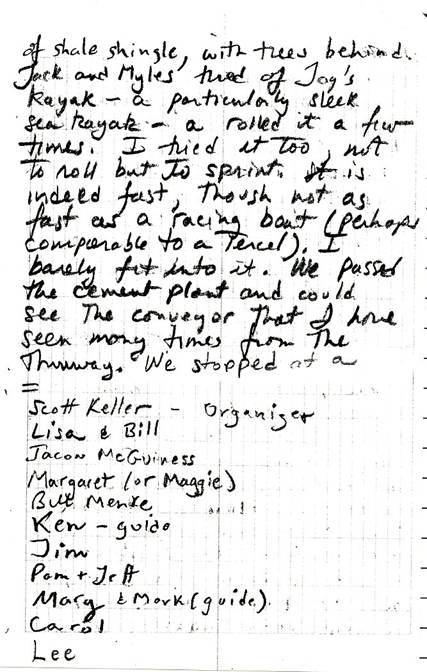 of shale shingle, with trees behind.
Jack and Myles tried of Jog's
kayak - a particularly sleek
sea kayak - a rolled it a few
times. I tried it too, not
to roll but to sprint. It is
indeed fast, though not as
fast as a racing boat (perhaps
comparable to a Tercel). I
barely fit into it. We passed
the cement plant and could
see the conveyor that I have
seen many times from the
Thruway. We stopped at a
=
Scott Keller - Organizer
Lisa & Bill
Jacon McGuiness
Margaret (or Maggie)
Bill Menke
Ken - guide
Jim
Pam + Jeff
Mary & Mark (guide)
Carol
Lee